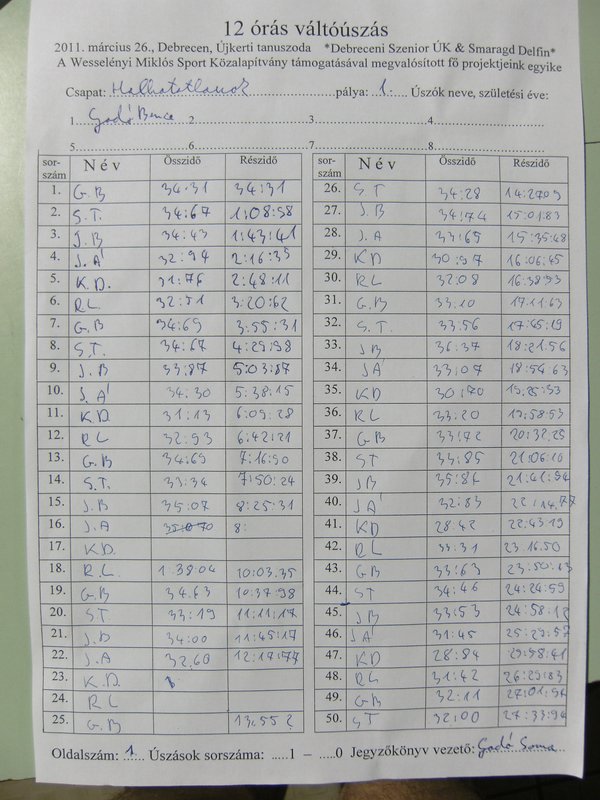 12 órás váltóúszás
2011. március 26., Debrecen, Újkerti tanuszoda *Debreceni Szenior ÚK & Smaragd Delfin*
A Wesselényi Miklós Sport Közalapítvány támogatásával megvalósított fő projektjeink egyike
Csapat: Halhatatlanok pálya: 1. Úszók neve, születési éve:
1. Gadó Bence 2. 3. 4.
5. 6. 7. 8.
sorszám Név Összidő Részidő sorszám Név Összidő Részidő
1. G.B 34:31 34:31 26. S T 34:28 14:2709
2. S.T. 34:67 1:08:98 27. J.B 34:74 15:01:83
3. J.B 34:43 1:43:41 28. J.A 33:65 15:35:48
4. J.A' 32:94 2:16:35 29. KD 30:97 16:06:45
5. K.D. 31:76 2:48:11 30. RL 32:08 16:38:53
6. RL. 32:51 3:20:62 31. G.B 33:10 17:11:63
7. G.B 34:69 3:55:31 32. S.T. 33:56 17:45:19
8. S.T. 34:67 4:29:98 33. J B 36:37 18:21:56
9. J.B 33:87 5:03:87 34. JA' 33:07 18:54:63
10. J.A' 34:30 5:38:15 35. KD 30:70 19:25:33
11. K.D 31:13 6:09:28 36. RL 33:20 19:58:53
12. RL 32:93 6:42:21 37. G.B 33:72 20:32:25
13. G.B 34:69 7:16:90 38. ST 33:85 21:06:10
14. S.T. 33:34 7:50:24 39. JB 35:84 21:41:94
15. J.B 35:07 8:25:31 40. JA' 32:83 22:14.77
16. J.A 8: 41. KD 28:42 22:43:19
17. K.D. 42. RL 33:31 23.16.50
18. R.L. 1:38:04 10:03.35 43. GB 33:63 23:50:13
19. G.B 34.63 10:37:98 44. ST 34:46 24:24:59
20. ST 33:19 11:11:17 45. JB 33:53 24:58:12
21. J.B 34:00 11:45:17 46. JA' 31:45 25:29:57
22. J.A 32,60 12:17:77 47. KD 28:84
23. K.D. 48. RL 31:42 26:29:83
24. RL 49. GB 32:11 27:01:94
25. G.B 13:55 2 50. ST 32:00 27:33:94
Oldalszám: 1. Úszások sorszáma: .....1 – .....0 Jegyzőkönyv vezető: Gadó Soma